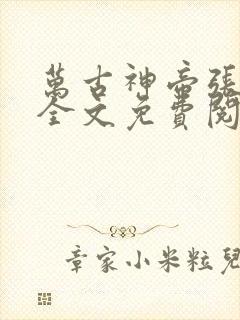 萬古神帝張
全文免費閱
章家小米粒兒